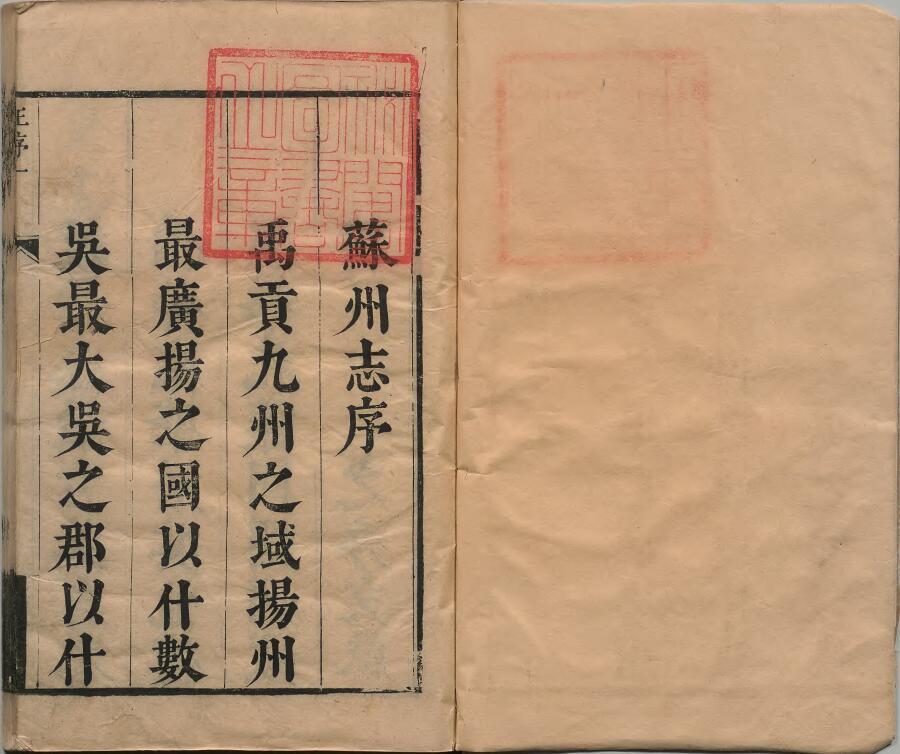 蘇州志序
禹貢九州之域揚州
最廣揚之國以什數
吳最大吳之郡以什